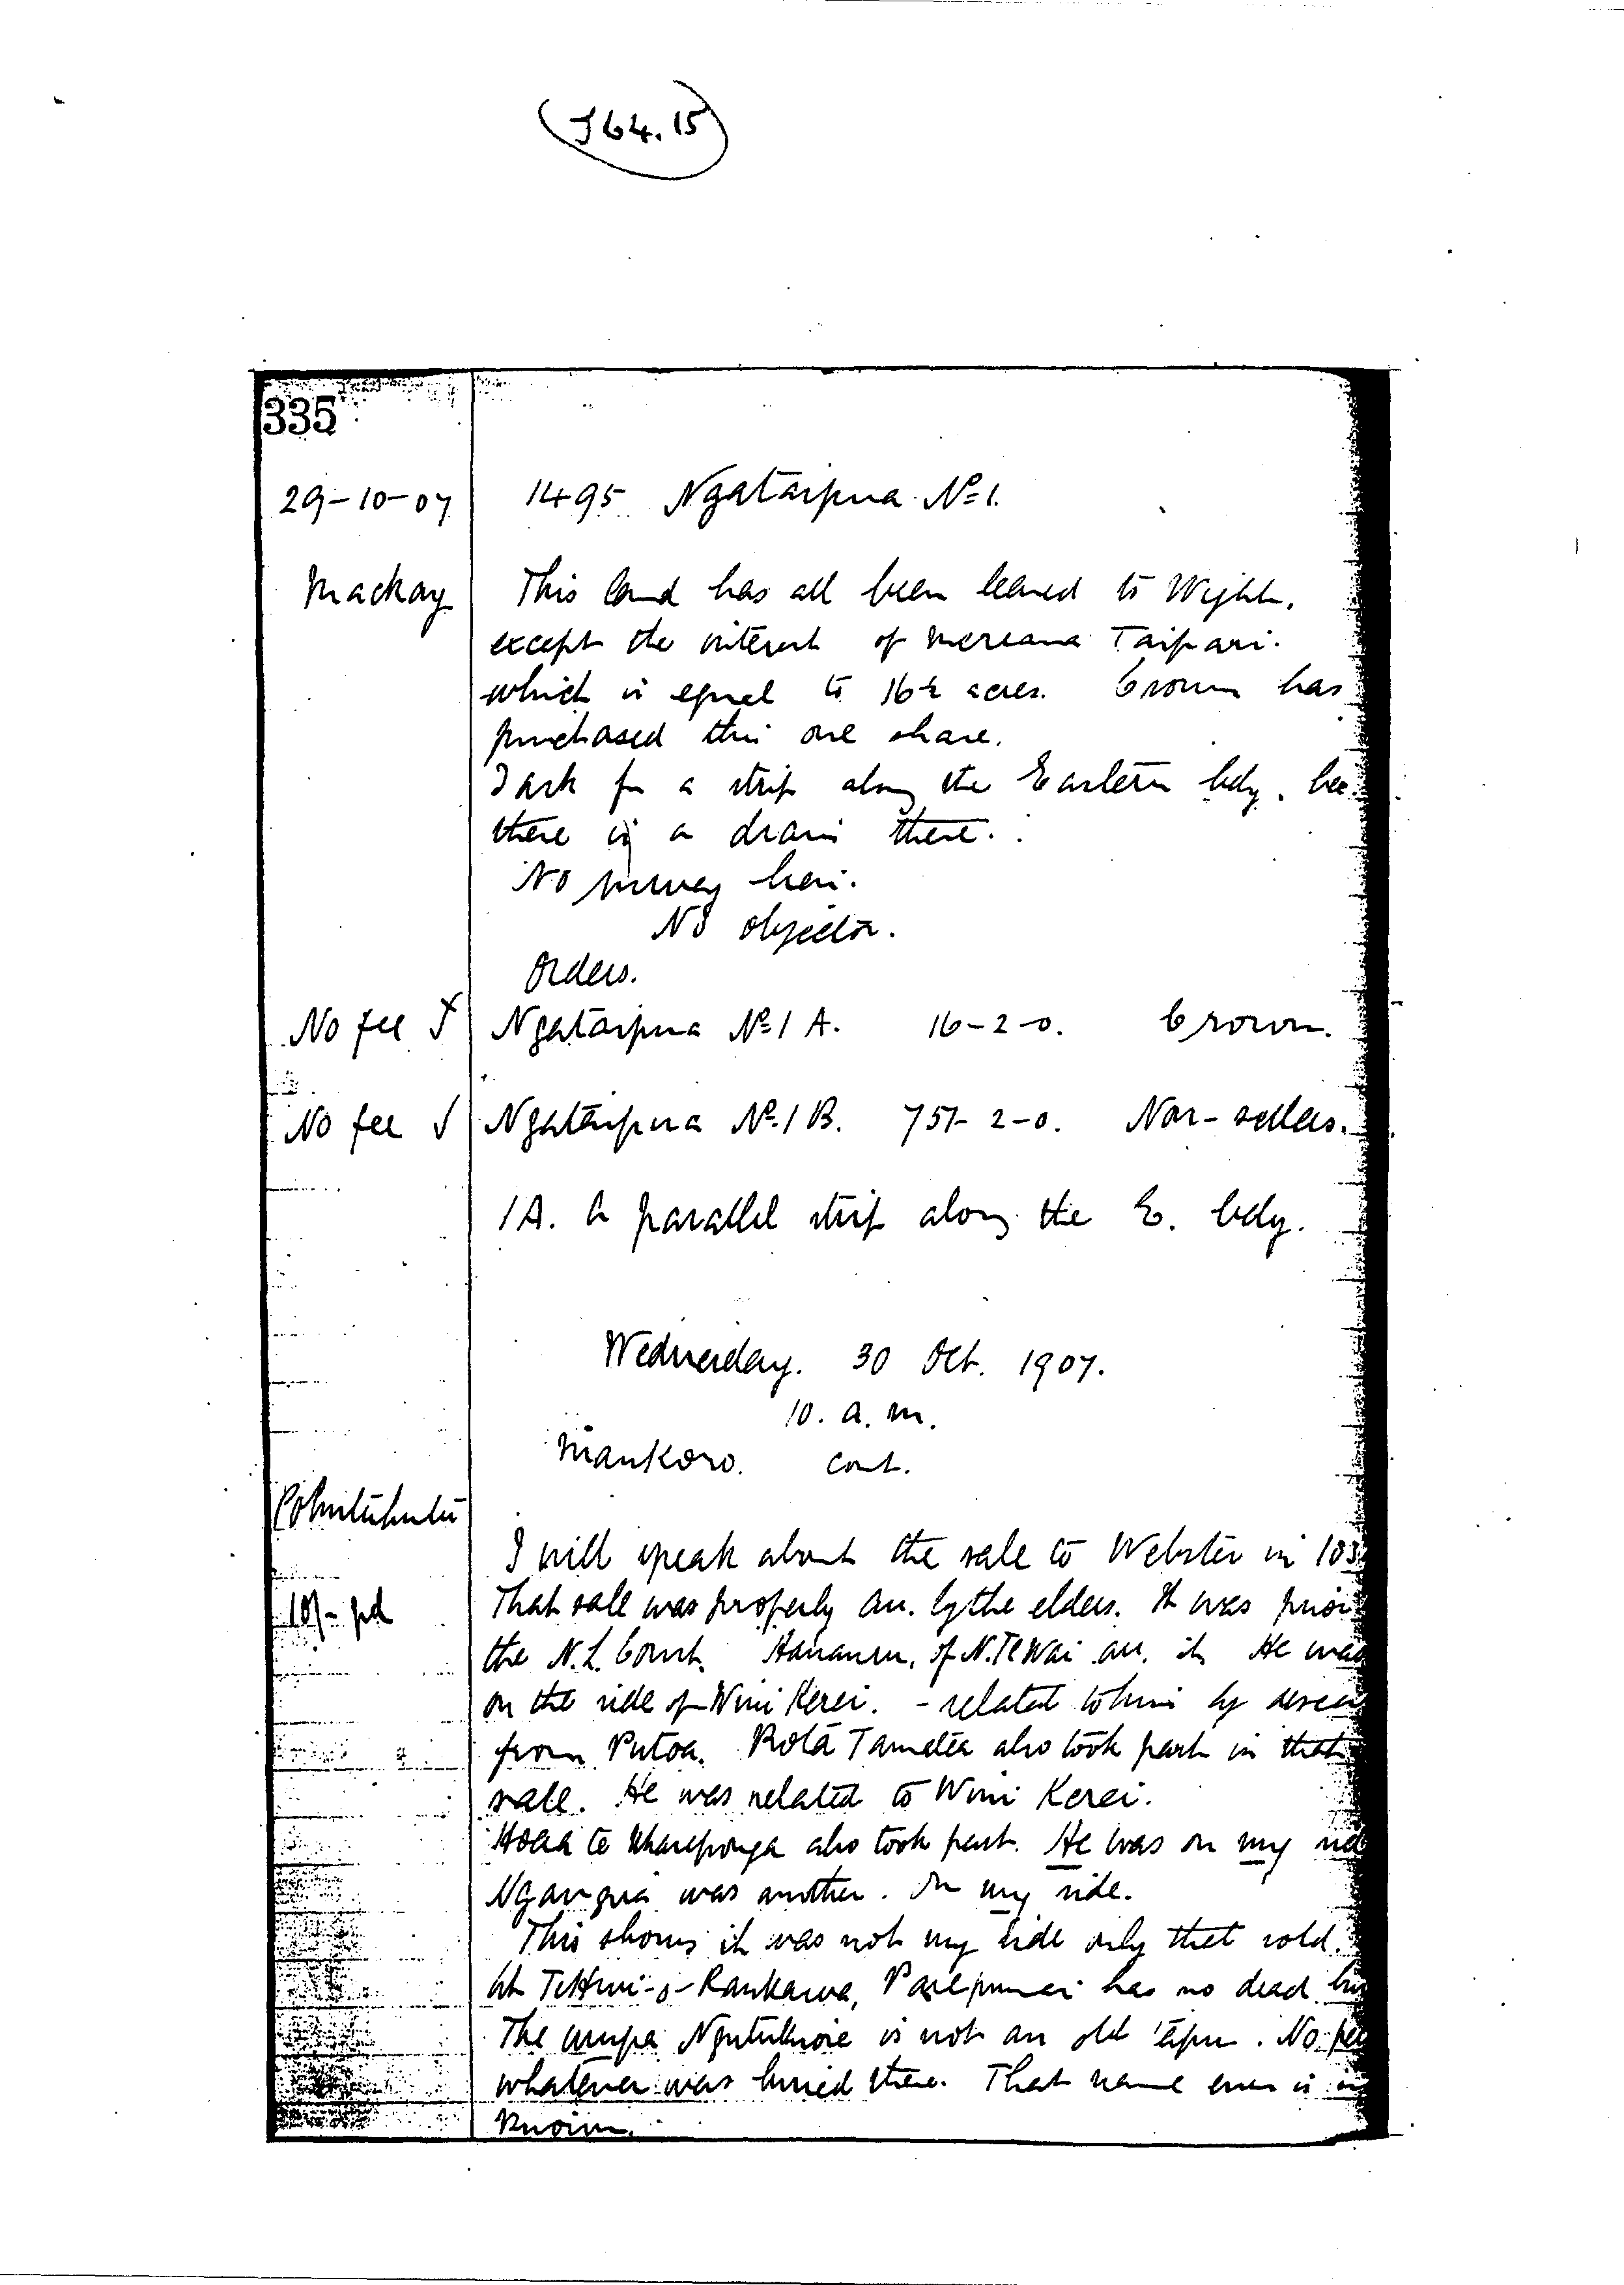 J64.15
335
29-10-07 1495 Ngataipua No 1.
Mackay This land has all been leased to Wight,
except the interest of Mereana Taipari.
which is equal to 16½ acres. Crown has
purchased this one share.
I ask for a strip along the Eastern bdy. bec.
there is a drain there.
No survey lien.
No objector.
Orders.
No fee Ngataipua No 1 A. 16-2-0. Crown.
No fee Ngataipua No 1 B. 751-2-0. Non-sellers.
1A. A parallel strip along the E. bdy.
Wednesday. 30 Oct. 1907.
10. a.m.
Maukoro. Cont.
I will speak about the sale to Webster in
10/- pd That sale was properly arr. by the elders. It was prior
the N.L. Court. of N.Te Wai arr. it. He was
on the side of Wini Kerei. - related to him by
from Putoa. Rota also took part in that
sale. He was related to Wini Kerei.
te Whareponga also took part. He was on my
was another. On my side.
This shows it was not my side only that sold.
At Te Hui-o-Raukawa, has no dead
The urupa is not an old . No
whatever was buried there. That name even is
known.